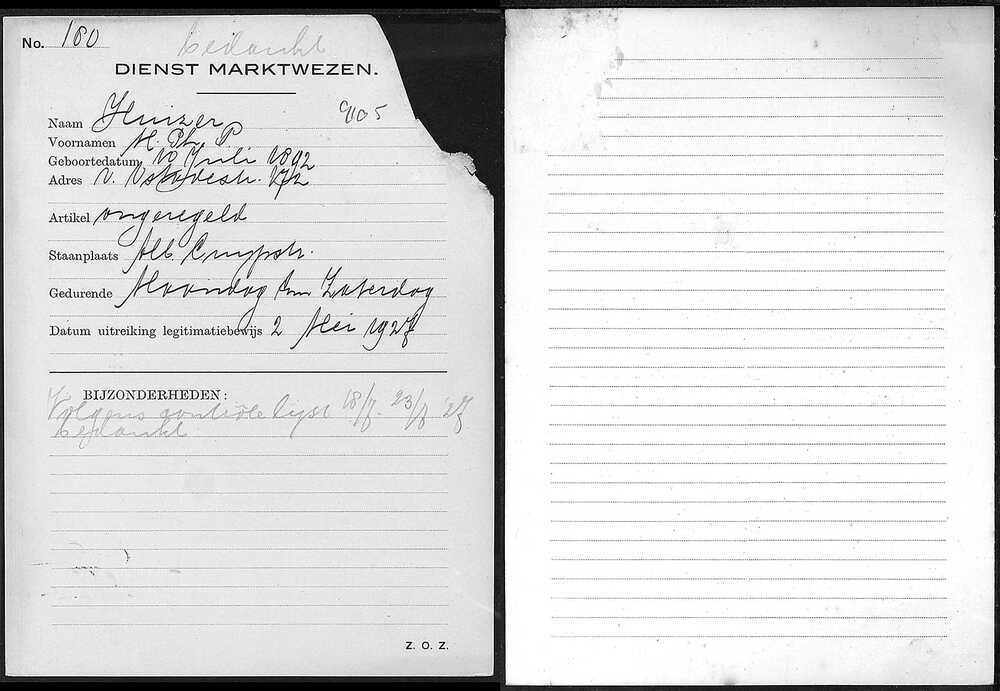 No. 180
bedankt
DIENST MARKTWEZEN.
Naam Huizer 905
Voornamen H. Ph. P
Geboortedatum 10 Juli 1892
Adres v. Ostadestr. 172
Artikel ongeregeld
Staanplaats Alb. Cuypstr.
Gedurende Maandag t/m Zaterdag
Datum uitreiking legitimatiebewijs 2 Mei 1927
BIJZONDERHEDEN:
Volgens contrôle lijst 18/7 - 23/7 '27
bedankt
Z. O. Z.